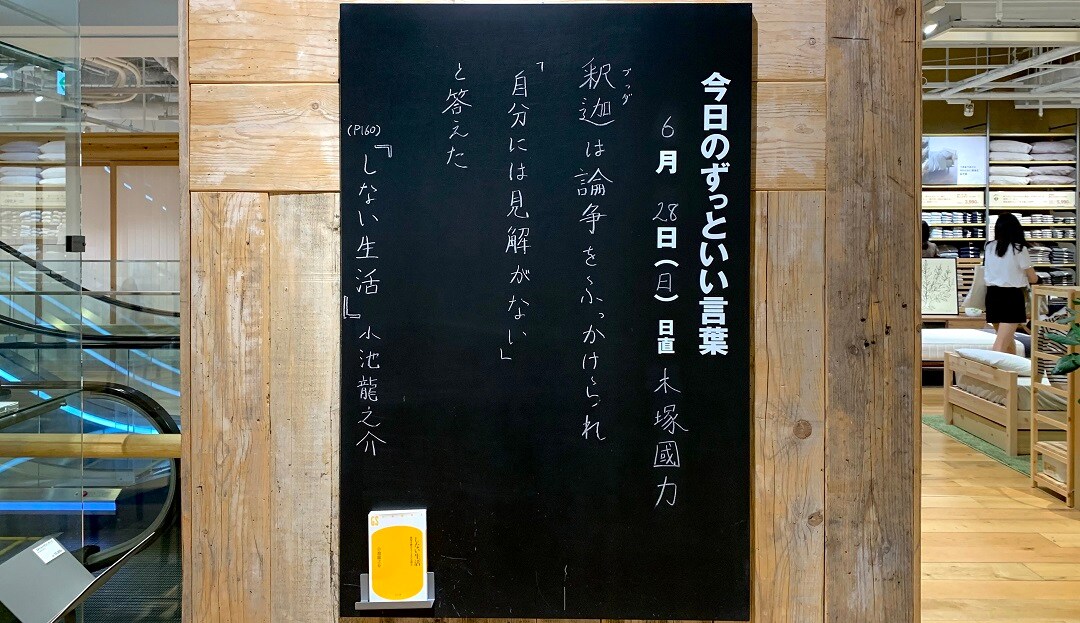 今日のずっといい言葉
6月28日(日) 日直 木塚國力
釈迦は論争をふっかけられ
ブッダ
「自分には見解がない」
と答えた
(P160)
『しない生活』小池龍之介
しない生活